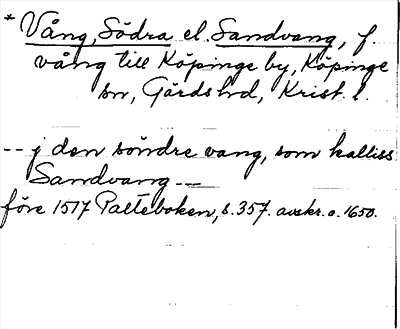 * Vång, Södra el. Sandvang, f.
vång till Köpinge by, Köpinge
sn, Gärds hd, Krist. l.
-- j den söndre vang, som kalliss
Sandvang --
före 1517 Palteboken, s. 357. avskr. o. 1650.